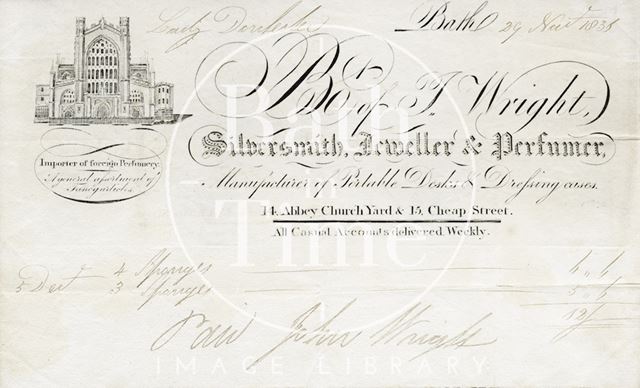 Lady Dorchester
Bath 29 Novr 1838
Bt of J. Wright,
Silversmith, Jeweller & Perfumer,
Manufacturer of Portable Desks & Dressing cases.
14, Abbey Church Yard & 15, Cheap Street.
All Casual Accounts delivered Weekly.
Importer of foreign Perfumery.
A general assortment of
Fancy articles.
4 Sponges
5 Decr 3 Sponges
12/
Paid John Wright
Bath
in
Time
IMAGE LIBRARY